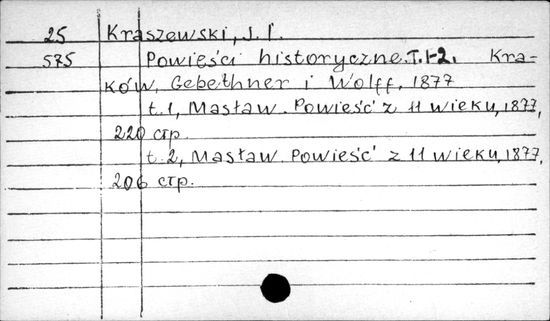 25 Kraszewski, J. I.
575 Powieści historyczne. T. 1-2. Kra-
ków, Gebethner i Wolff, 1877
t. 1, Masław. Powieść z 11 wieku, 1877,
220 стр.
t. 2, Masław. Powieść z 11 wieku, 1877,
206 стр.